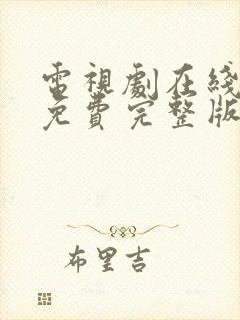 電視劇在綫
免費完整版
布里吉